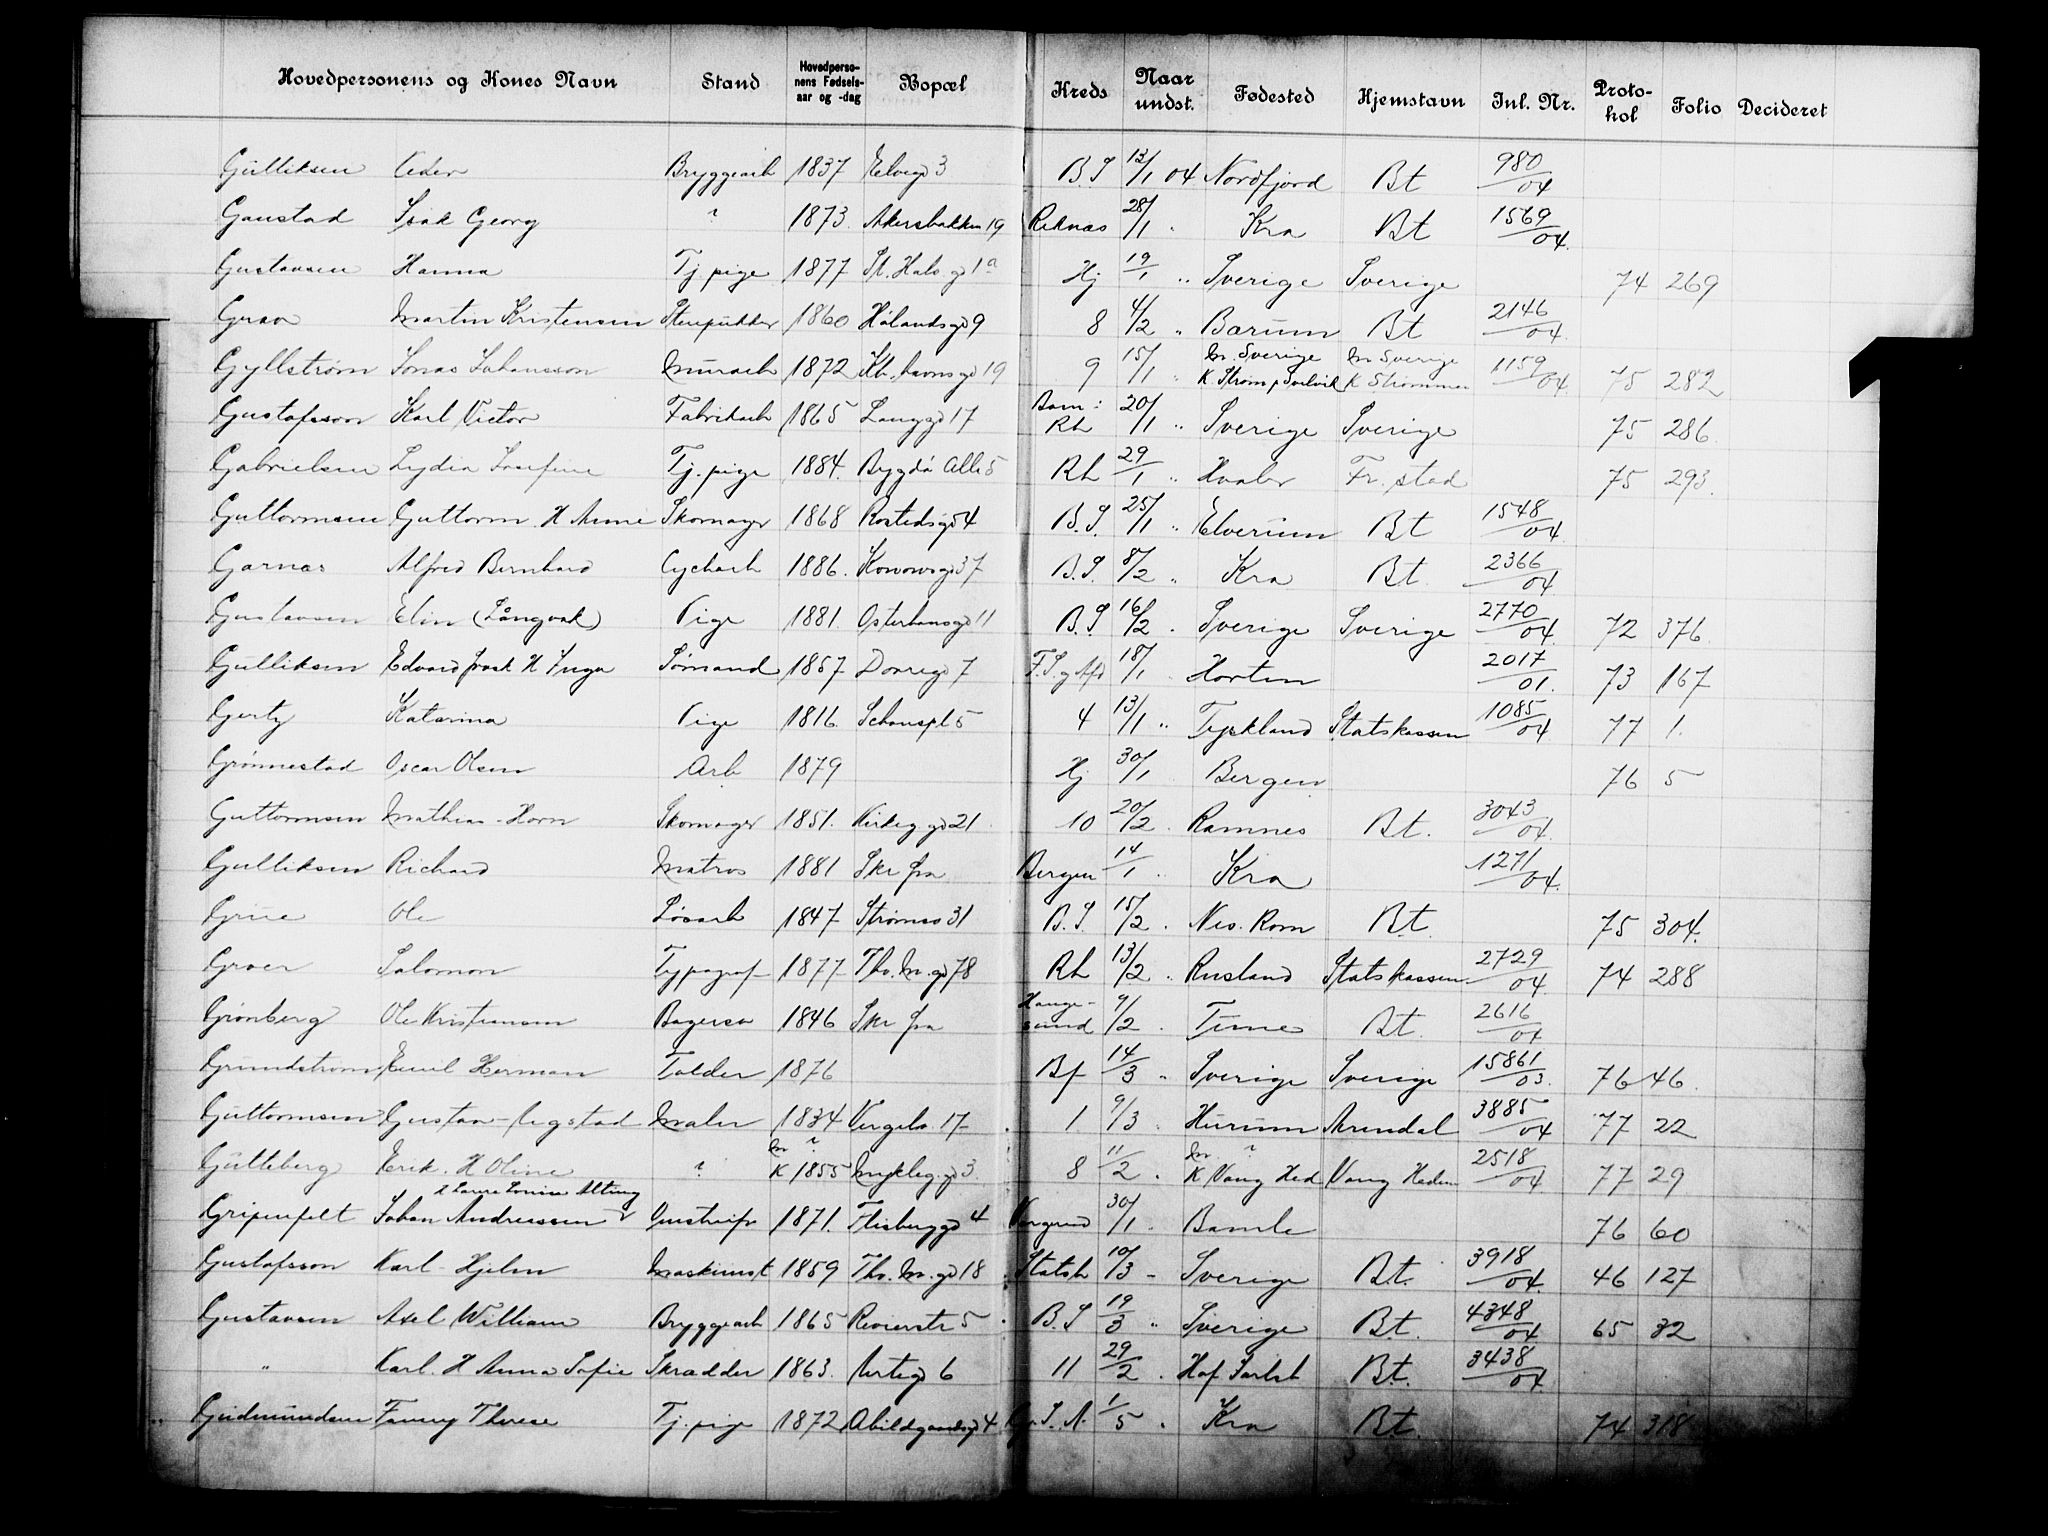 Hovedpersonens og Kones Navn Stand Hovedperso-nens Fødsels-aar og -dag Bopæl Kreds Naar undst. Fødested Hjemstavn Jnl. Nr. Proto-kol Folio Decideret
Gulliksen Peder Bryggearb 1837 Elvegd 3 B.S 13/1 04 Nordfjord Bt 980/04
Gaustad Isak Georg ? 1873. Akersbakken 19 Reknæs 28/1 " Kra Bt 1569/04.
Gustavsen Hanna Tj.pige 1877 St. Halv.gd 1a Hj 19/1 " Sverige Sverige 74 269
Grav Martin Kristensen Stenpukker 1860 Hølandsgd 9 8 4/2 " Bærum Bt 2146/04
Gyllstrøm Jonas Johansson Murarb 1872 Kb.havnsgd 19 9 15/1 " M. Sverige K. Strøm p Svelvik M Sverige K Strømmen 1159/04. 75 282
Gustafsson Karl Victor Fabrikarb 1865 Langgd 17 Barn: Rh 20/1 " Sverige Sverige 75 286.
Gabrielsen Lydia Josefine Tj.pige 1884. Bygdø Alle 5 Rh 29/1 " Hvaler Fr.stad 75 293.
Guttormsen Guttorm. H Anne Skomager 1868 Rostedsgd 4 B.S. 25/1 " Elverum Bt 1548/04
Garnæs Alfred Bernhard Cyclearb 1886. Konowsgd 37 B.S. 8/2 " Kra Bt. 2366/04.
Gustavsen Elin (Långvak) Pige 1881. Osterhausgd 11 B.S 16/2 . Sverige Sverige 2770/04. 72 376.
Gulliksen Edvard Isak H Inga Sømand 1857 Dovregd 7 F.S. g Afd 18/1 . Horten 2017/01. 73 167
Gertz Katarina Pige 1816. Schouspl 5 4 13/1 " Tyskland Statskassen 1085/04 77 1.
Grønnestad Oscar Olsen Arb 1879 Hj 30/1 . Bergen 76 5
Guttormsen Mathias - Horn Skomager 1851. Kirkeg.gd 21. 10 20/2 . Ramnes Bt. 3043/04.
Gulliksen Richard Matros 1881 Skr fra Bergen 14/1 " Kra 1271/04.
Grue Ole Løsarb 1847 Strømsv 31 B.S. 15/2 . Nes. Rom Bt. 75 304.
Groer Salomon Typograf 1877 Th. M.gd 78 Rh 13/2 " Rusland Statskassen 2729/04. 74 288
Grønberg Ole Kristiansen Bagersv 1846 Skr fra Hauge-sund 9/2 . Time Bt. 2616/04
Grundstrøm Emil Herman Tolder 1876 Bf 14/3 " Sverige Sverige 15861/03. 76 46.
Guttormsen Gustav - Aegstad Maler 1834 Vergelv 17 1. 9/3 . Hurum Arendal 3885/04 77 22
Gulteberg Erik. H Oline ? M ? K 1855 Mykleg.gd 3. 8 11/2 . M. ? K Vang Hed Vang Hedm 2518/04. 77 29
H Laura Lovisa Altung
Gripenfelt Johan Andreassen 1871. Flisberggd 4 30/1 . Bamle 76 60
Gustafsson Karl - Hjelm Maskinist 1859 Th. M.gd 18 Statsk 10/3 - Sverige Bt. 3918/04. 46 127
Gustavsen Axel William Bryggearb 1865 Revierstr 5. B.S 19/3 " Sverige Bt. 4348/04 65 32
" Karl. H Anna Sofie Skrædder 1863. Urtegd 6 11 29/2 . Hof Jarlsb Bt. 3438/04.
Gudmundsen Fanny Therese Tj.pige 1872 Abildgaardsgd 4 Gr.S.A. 1/5 . Kra Bt. 74 318